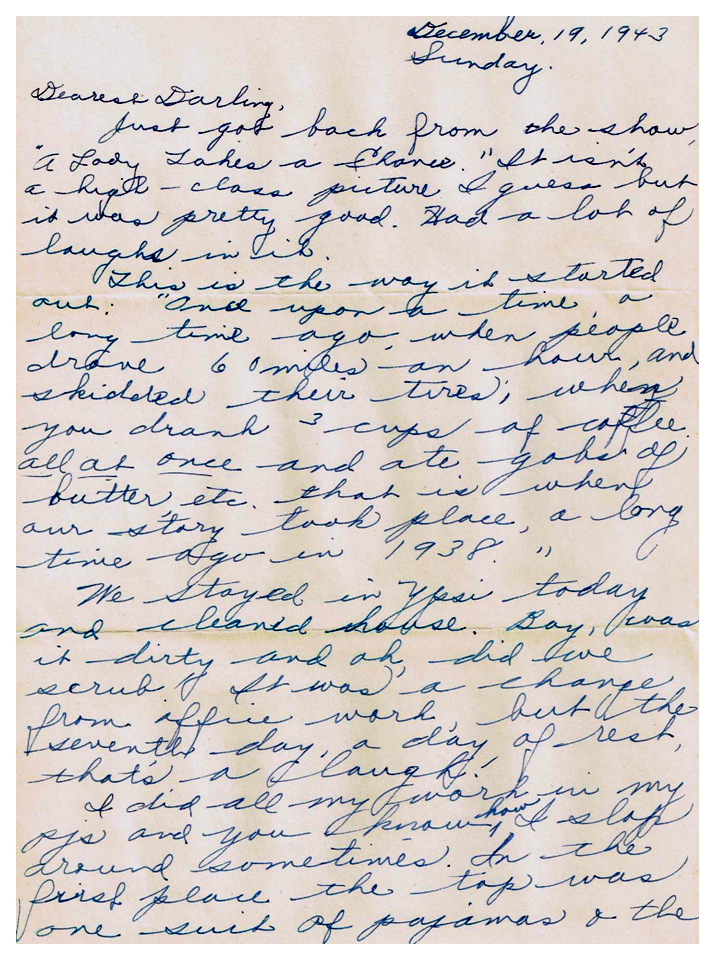 December, 19, 1943
Sunday.
Dearest Darling,
Just got back from the show,
"A Lady Takes a Chance." It isn't
a high-class picture I guess but
it was pretty good. Had a lot of
laughs in it.
This is the way it started
out: "Once upon a time, a
long time ago, when people
drove 60 miles an hour, and
skidded their tires, when
you drank 3 cups of coffee
all at once and ate gobs of
butter etc. that is when
our story took place, a long
time ago in 1938."
We stayed in Ypsi today
and cleaned house. Boy, was
it dirty and oh, did we
scrub! It was a change
from office work, but the
seventh day, a day of rest,
that's a laugh!
I did all my work in my
pjs and you know how I slop
around sometimes. In the
first place the top was
one suit of pajamas & the